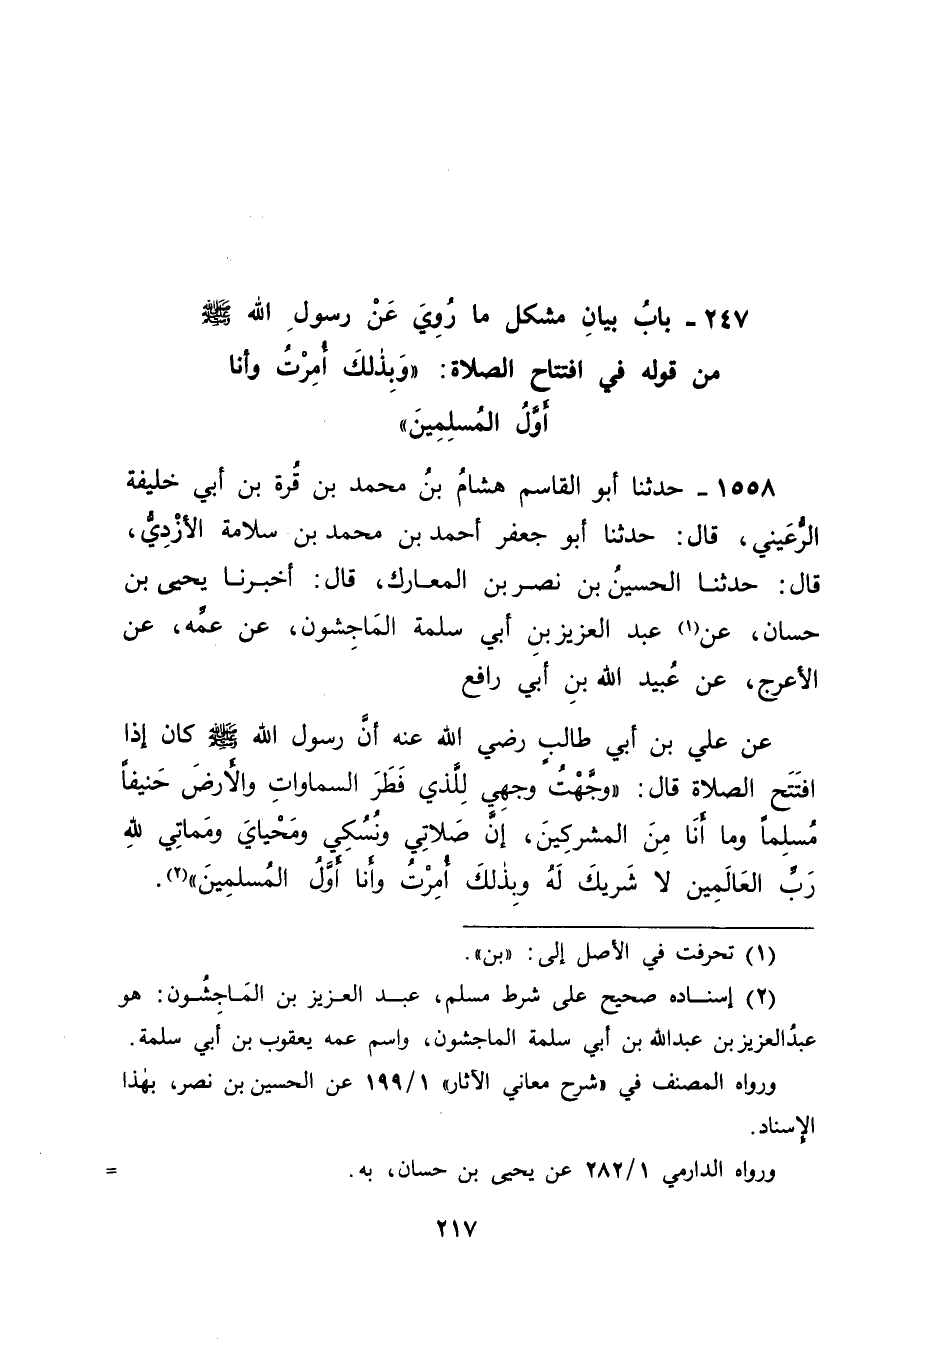 ٢٤٧ - بابُ بيانِ مشكل ما رُوِيَ عَنْ رسولِ الله ﷺ
من قوله في افتتاح الصلاة: «وَبِذٰلكَ أُمِرْتُ وأنا
أَوَّلُ المُسلِمِينَ»
١٥٥٨ - حدثنا أبو القاسم هشامُ بنُ محمد بن قُرة بن أبي خليفة
الرُّعَيني، قال: حدثنا أبو جعفر أحمد بن محمد بن سلامة الأزْدِيُّ،
قال: حدثنا الحسينُ بن نصر بن المعارك، قال: أخبرنا يحيى بن
حسان، عن(١) عبد العزيز بنِ أبي سلمة المَاجِشون، عن عمِّه، عن
الأعرج، عن عُبيد الله بنِ أبي رافع
عن علي بن أبي طالبٍ رضي الله عنه أنَّ رسول الله ﷺ كان إذا
افتَتَح الصلاة قال: «وجَّهْتُ وجهِي لِلَّذي فَطَرَ السماواتِ والأَرضَ حَنيفاً
مُسلِماً وما أَنَا مِنَ المشركِينَ، إنَّ صَلاتِي ونُسُكِي ومَحْيايَ ومَماتِي للهِ
رَبِّ العَالَمِين لا شَرِيكَ لَهُ وبِذٰلكَ أُمِرْتُ وأَنا أَوَّلُ المُسلمِينَ»(٢).
(١) تحرفت في الأصل إلى: «بن».
(٢) إسناده صحيح على شرط مسلم، عبد العزيز بن المَاجِشُون: هو
عبدُالعزيز بن عبدالله بن أبي سلمة الماجشون، واسم عمه يعقوب بن أبي سلمة.
ورواه المصنف في «شرح معاني الآثار» ١/١٩٩ عن الحسين بن نصر، بهٰذا
الإِسناد.
ورواه الدارمي ١/٢٨٢ عن يحيى بن حسان، به. =
٢١٧